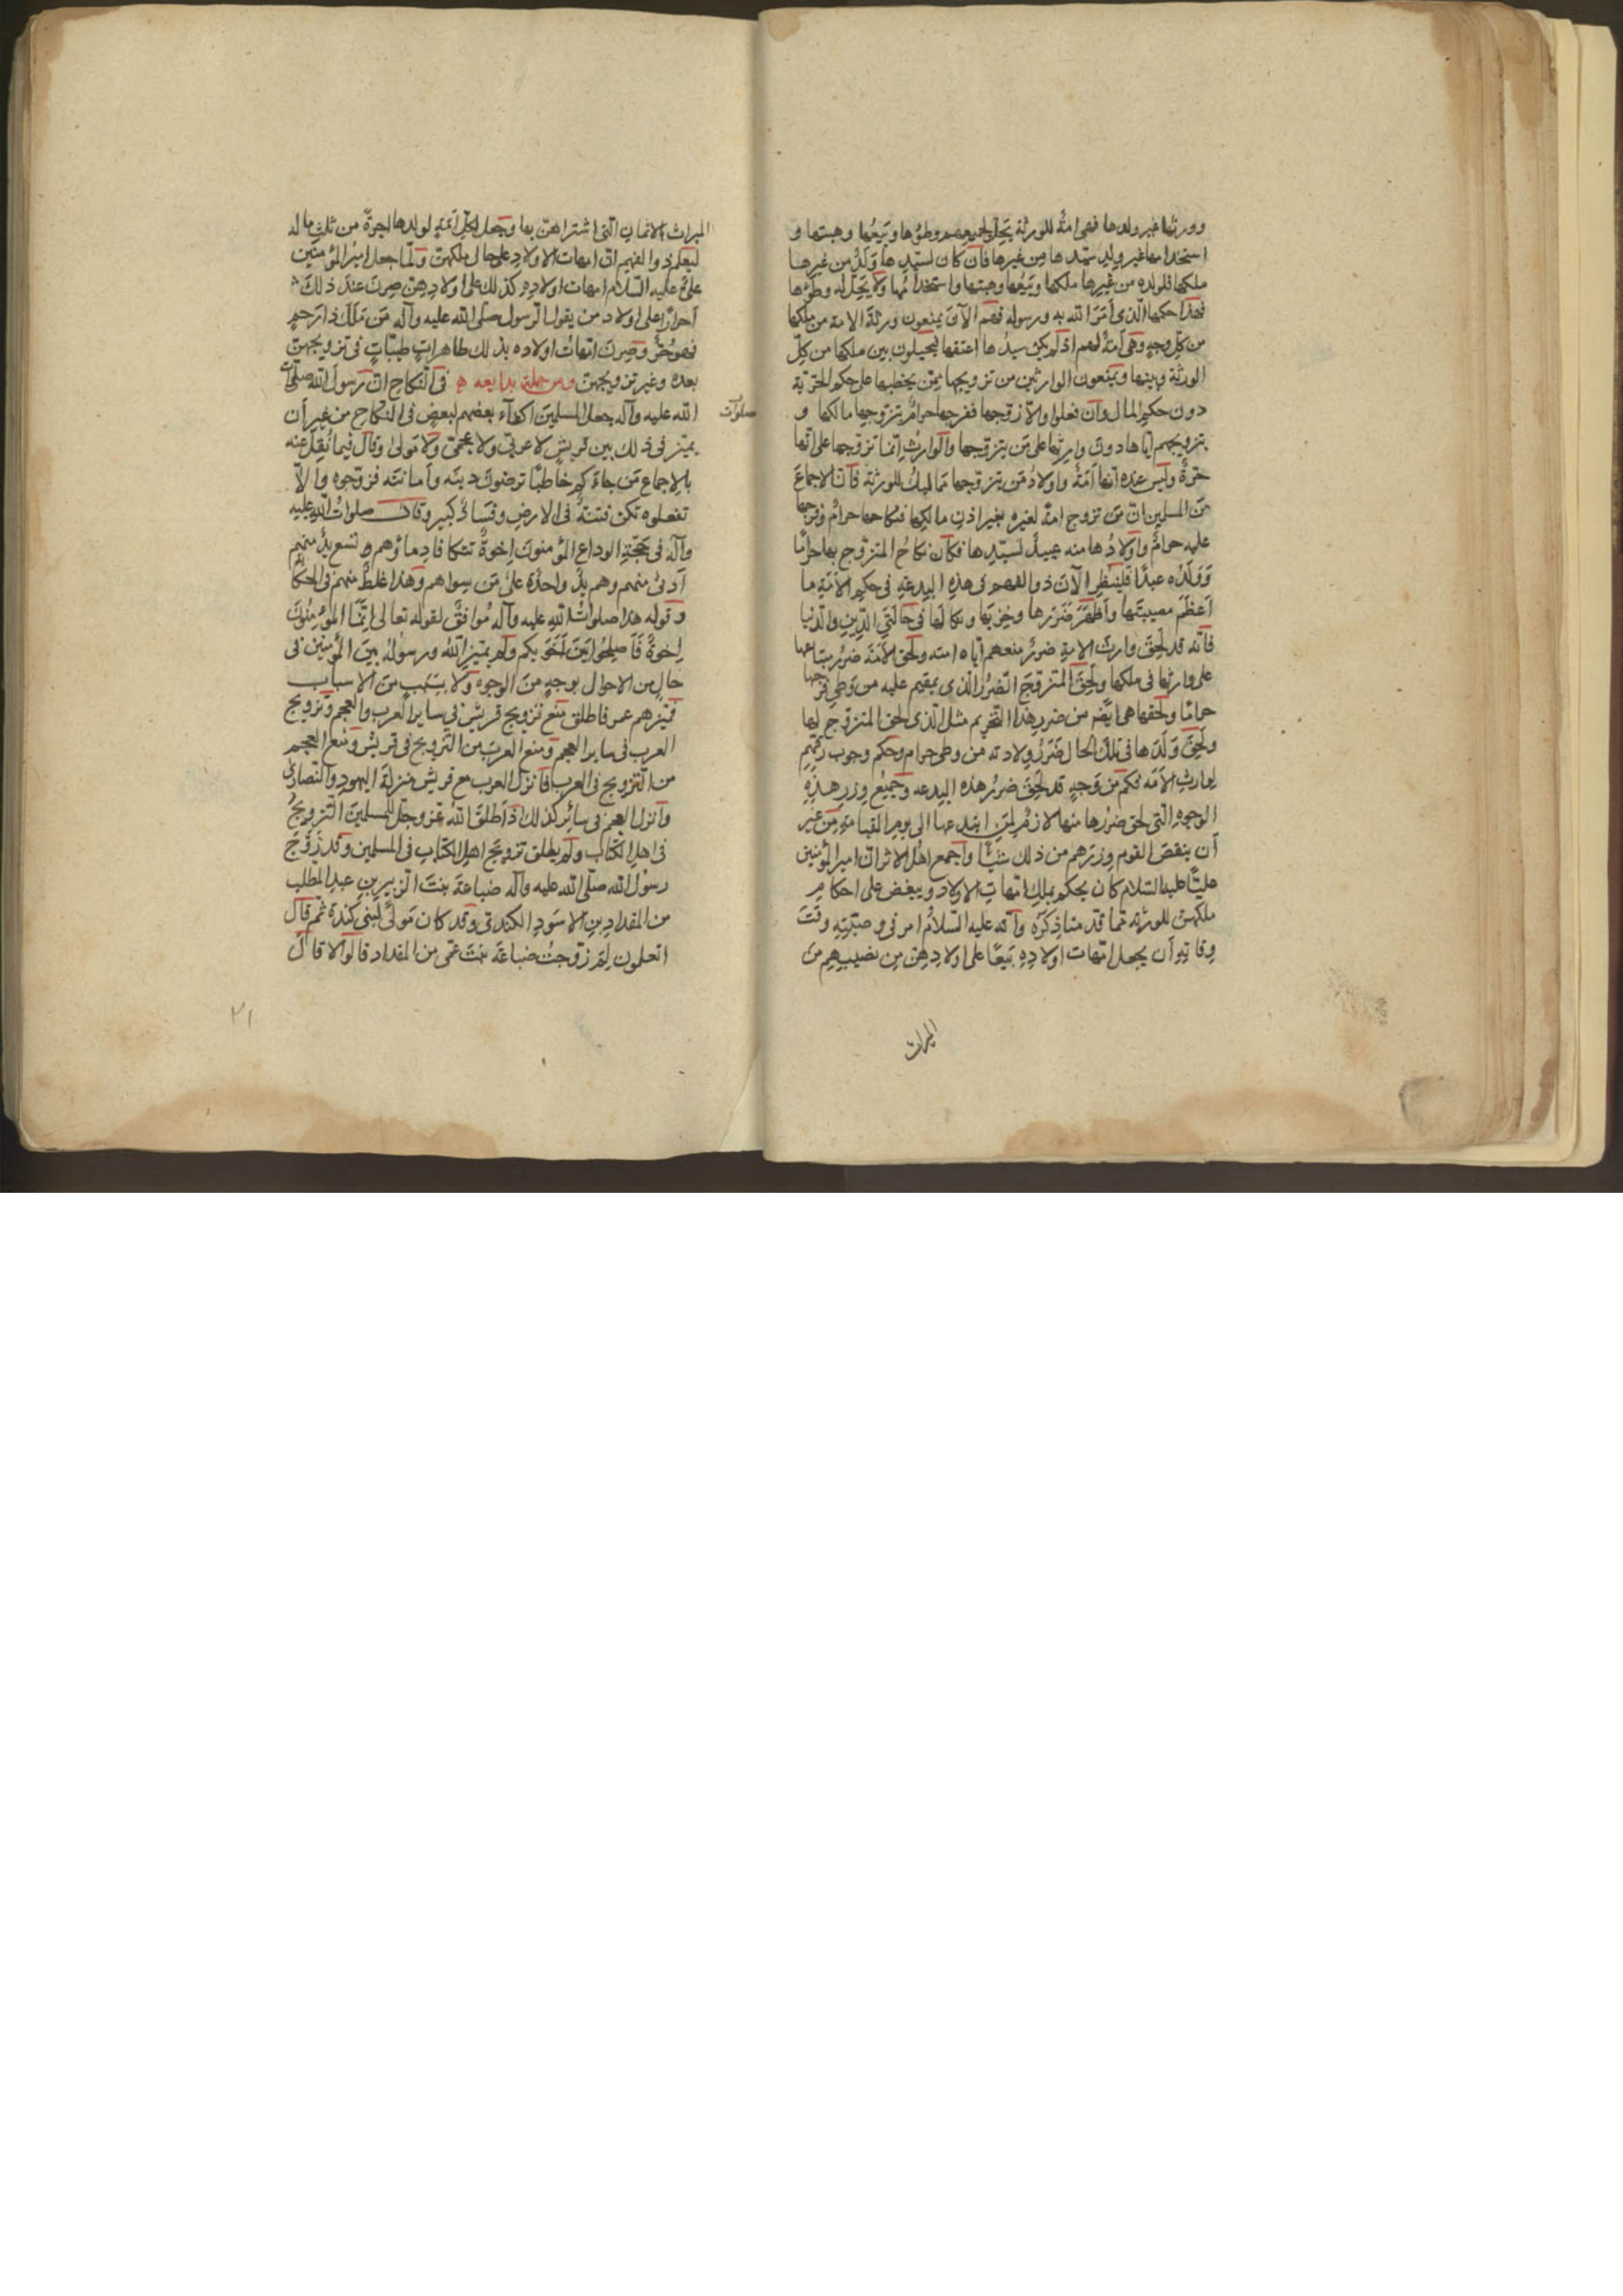 وورثها غير ولدها فهى امةٌ للورثة يَحِلّ لجميعهم وطؤُها وبَيعُها وهبتها و
استخدامها غير ولدِ سيّدها مِن غيرها فان كان لسيّدِها وَلَدٌ من غيرها
ملكها فلولده من غيرها ملكها وبَيعُها وهبتها واستخدامُها ولا يَحِلّ له وطؤها
فهذا حكمها الّذى اَمَرَ الله به ورسوله فهم الآنَ يمنعون ورثةَ الامة من ملكها
من كلِّ وجهٍ وهى اَمَةٌ لهم اذ لم يكن سيدُها اعتقها فيحيلون بين ملكها من كلّ
الورثة وبينها ويمنعون الوارثين من تزويجها ممّن يخطبها على حكم الحرّية
دون حكم المال وان فعلوا والاّ زوّجها ففرجها حرامٌ بتزويجها مالكها و
بتزويجهم ايّاها دونَ وارثها على مَن يتزوّجها والوارث انّما تزوّجها على انّها
حرّةٌ وليس عنده انّها اَمَةٌ واولادُ مَن يتزوّجها مماليكُ للورثة فانّ الاجماعَ
مِن المسلمين انّ مَن تزوج امةً لغيره بغير اذن مالكها فنكاحها حرامٌ وفرجها
عليه حرامٌ واولادُها منه عبيدٌ لسيّدِها فكان نكاحُ المتزوّج بها حرامًا
ووَلَدُه عبدًا فليَنظُرِ الآنَ ذوالفهم فى هذهِ البِدعةِ فى حكمِ الاَمَةِ ما
اَعظَمَ مصيبتَها واَظهَرَ ضَرَرَها وخِزيَها ونكالَها فى حالَتَىِ الدّينِ والدّنيا
فانّه قد لَحِقَ وارثَ الامةِ ضررُ منعهم ايّاه امته ولحق الاَمَةَ ضررُ
على وارثها فى ملكها ولَحِقَ المتزوّجَ الضّررُ الّذى يقيم عليه من وَطىِ فرجها
حرامًا ولحقها هى ايضًا من ضررِ هذا التحريم مثل الّذى لحق المتزوّجَ لها
ولَحِقَ وَلَدَها فى تلك الحال ضَرَرُ ولادته من وطىٍ حرام وحكم وجوب رقّهم
لوارثِ الاَمَة فكم مِن وَجهٍ قد لحق ضررُ هذه البدعه وجَميعُ وزرِ هذِهِ
الوجوهِ التى لحق ضررها منها لازمٌ لمَنِ ابتدعها الى يومِ القيامةِ مِن غير
اَن ينقصَ القوم وِزرَهم من ذلك شيئًا واَجمع اهلُ الاثر انّ امير المؤمنين
عليًّا عليه السّلام كان يحكم بملكِ امّهاتِ الاولاد ويبغض على احكام
ملكهنّ للورثة مما قد متنا ذكرُه وانّه عليه السّلامُ امر فى وصيّتِهِ وقتَ
وفاتِهِ اَن يجعل امّهات اولادِهِ بَيعًا على اولادِهِنّ مِن نصيبِهِم من
الميراث
الميراث الاثمان الّتى اشتراهنّ بها وجعل لكلّ اَمَةٍ لولدها من ثلثِ ماله
ليعلم ذوالفهم انّ امهات الاولاد على حال ملكهنّ ولمّا جعل اميرُ المؤمنين
علىٌّ عليه السّلام امهات اولادهِ كذلك على اولادِهِنّ صِرنَ عندَ ذلك
اَحرارًا على اولاد من يقول الرسول صلّى الله عليه وآله مَن مَلَكَ ذا رَحِمٍ
فهو حُرٌّ وصِرنَ امّهاتُ اولاده بذلك طاهراتٍ طيّباتٍ فى تزويجهنّ
بعده وغير تزويجهنّ ومن جملة بدايعه فى النّكاح انّ رسولَ الله صلّى
الله عليه وآله جعل المسلمين اكفاء بعضهم لبعضٍ فى النكاح من غير اَن
صلوات
يميّز فى ذلك بين قريشٍ لا عربىٍّ ولا عجمىٍّ ولا مَولىٰ وقال فيما نُقِلَ عنه
بالاجماع مَن جاءَكم خاطبًا ترضونَ دينَه واَمانتَه فزوّجوه والّا
تفعلوه تكن فتنةٌ فى الارضِ وفسادٌ كبير وقال صلواتُ الله عليه
وآله فى حجّةِ الوداع المؤمنونَ اِخوةٌ تتكافا دِماؤهم ويسعى بذمّتهم
اَدنىٰ منهم وهم يدٌ واحدةٌ علىٰ مَن سِواهم وهذا غلطٌ منهم فى الحكام
وقوله هذا صلواتُ اللهِ عليه وآله مُوافقٌ لقوله تعالى اِنّمَا المُؤمِنُونَ
اِخوةٌ فَاَصلِحُوا بَينَ اَخَوَيكُم ولم يميّزِ الله ورسولُه بين المؤمنين فى
حالٍ من الاحوال بوجهٍ منَ الوجوه ولا بسَبَبٍ منَ الاسباب
فميّزهم عمر فاطلق منع تزويج قريش فى ساير العرب والعجم وتزويج
العرب فى ساير العجم ومنع العربَ مِن التزويج فى قريش ومنع العجم
من التزويج فى العرب فانزل العرب مع قريش منزلةَ اليهودِ والنّصارىٰ
وانزل العجم فى سائر كذلك اذ اَطلَقَ اللهُ عزّ وجلّ للمسلمين التزويجَ
فى اهلِ الكتاب ولم يطلق تزويجَ اهلِ الكتابِ فى المسلمين وقد زَوّجَ
رسول الله صلّى الله عليه وآله ضباعةَ بنتَ الزبيرِ بنِ عبدِ المطّلب
من المقدادِ بنِ الاسودِ الكندىّ وقد كان مَولىً لبنى كندةَ ثمّ قال
اتعلمون لِمَ زوّجتُ ضباعةَ بنتَ عمّى من المقداد قالوا لا قال
٢١